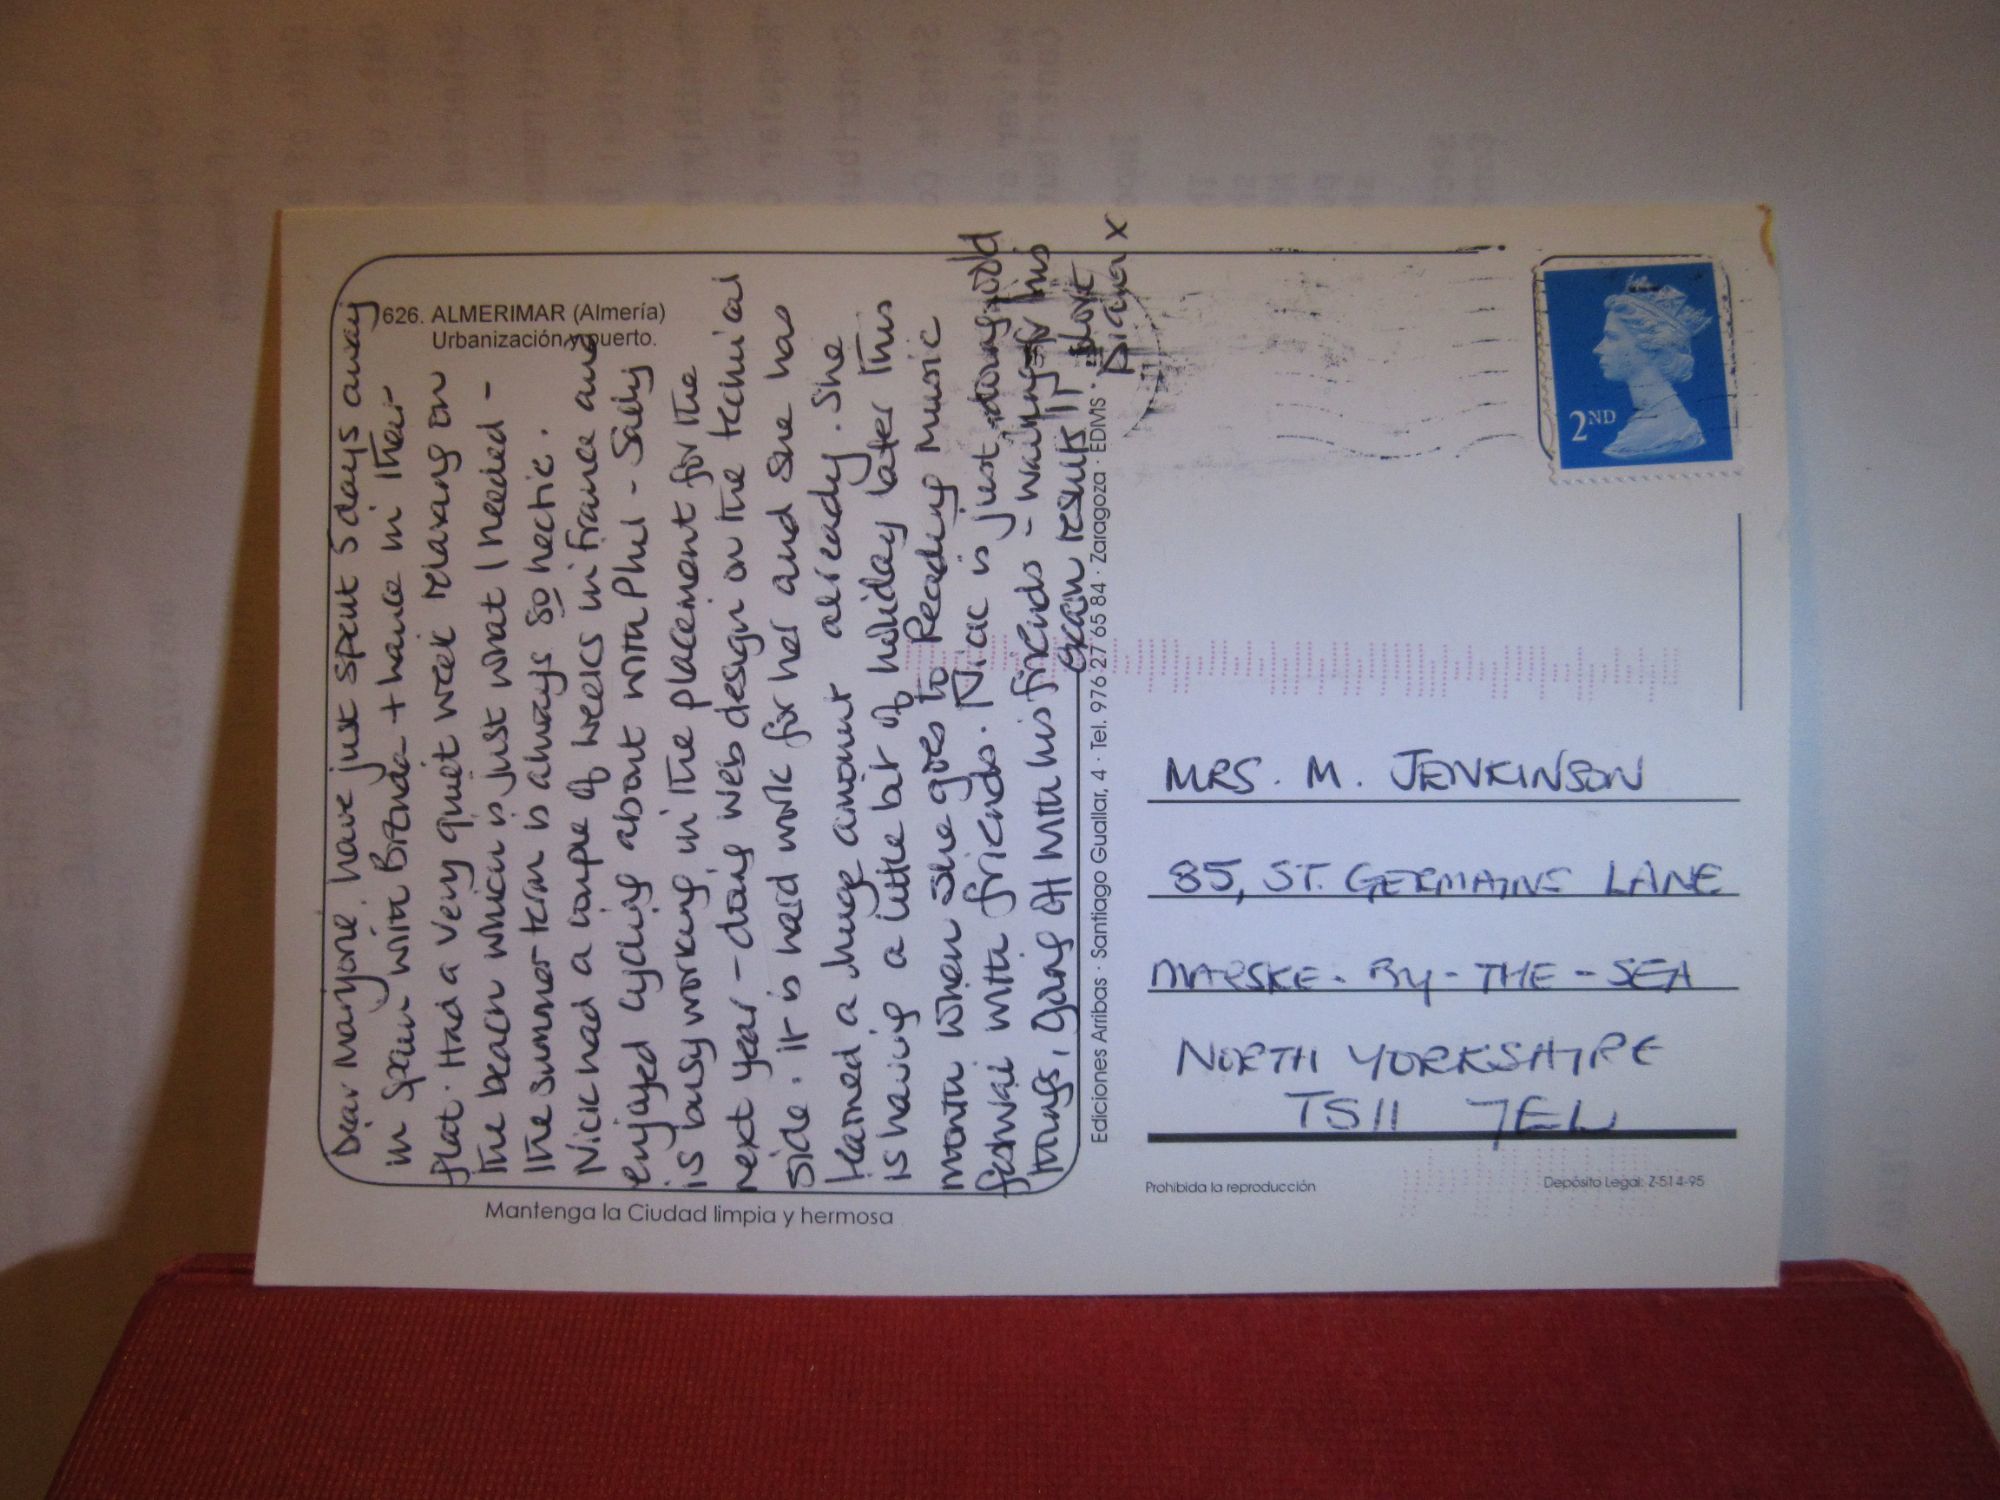 626. ALMERIMAR (Almería)
Urbanización y puerto.
Dear Marjorie, have just spent 5 days away
in Spain with Brenda + hance in their
flat. Had a very quiet week relaxing on
the beach which is just what I needed -
the summer term is always so hectic.
Nick had a couple of weeks in France and
enjoyed cycling about with Phil - Sally
is busy working in the placement for the
next year - doing web design on the technical
side. it is hard work for her and she has
learned a huge amount already. She
is having a little bit of holiday later this
month when she goes to Reading Music
festival with friends. Nic is just doing odd
things, going off with his friends - waiting for his
exam results!! Love
Diana x
Mantenga la Ciudad limpia y hermosa
Ediciones Arribas · Santiago Guallar, 4 · Tel. 976 27 65 84 · Zaragoza · EDMS ·
2ND
MRS. M. JENKINSON
85, ST. GERMAINS LANE
MARSKE-BY-THE-SEA
NORTH YORKSHIRE
TS11 7EL
Prohibida la reproducción
Depósito Legal: Z-514-95